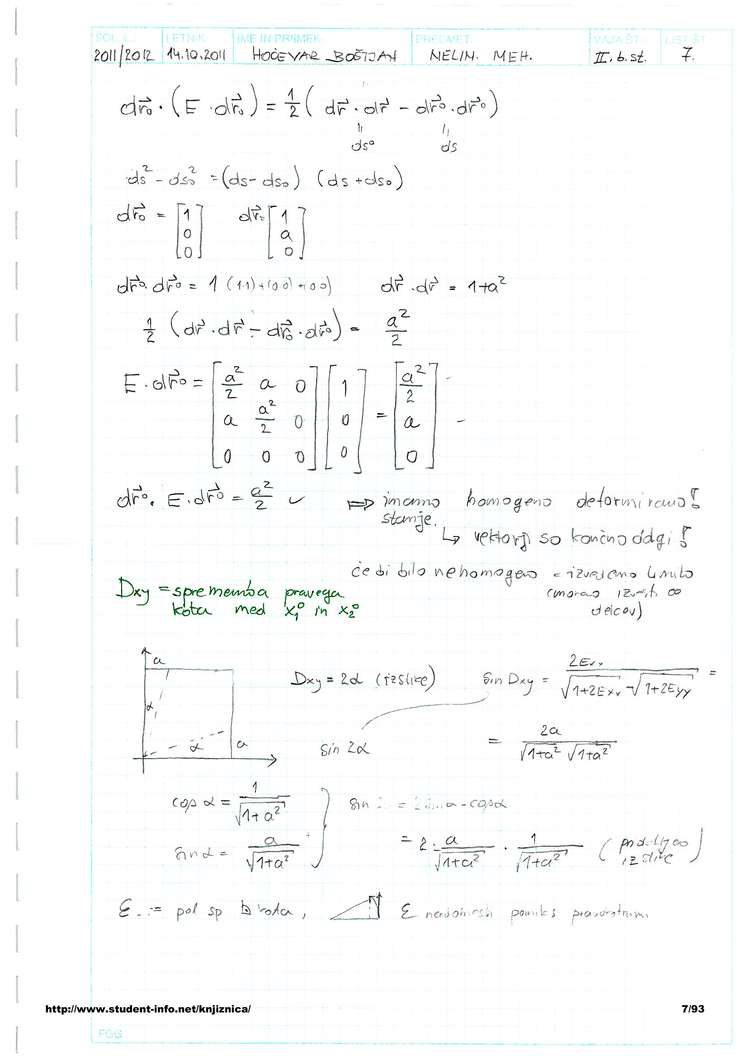 ŠOL. L.: LETNIK IME IN PRIIMEK PREDMET VAJA ŠT. LIST ŠT.
2011/2012 14.10.2011 HOČEVAR BOŠTJAN NELIN. MEH. II. b. st. 7.
dr₀ · (E · dr₀) = 1/2 ( dr · dr - dr₀ · dr₀ )
ds₀ ds
ds² - ds₀² = (ds - ds₀) (ds + ds₀)
dr₀ = [1 0 0] dr = [1 a 0]
dr₀ · dr₀ = 1 (1·1)+(0·0)+(0·0) dr · dr = 1+a²
1/2 (dr · dr - dr₀ · dr₀) = a²/2
E · dr₀ = [a²/2 a 0; a a²/2 0; 0 0 0] [1 0 0] = [a²/2 a 0]
dr₀ · E · dr₀ = a²/2 ✓ ⇒ imamo homogeno deformirano!
stanje.
↳ vektorji so končno dolgi!
če bi bilo nehomogeno = izvajamo limito
(moraš izvesti ∞
delcev)
Dxy = sprememba pravega
kota med x₁⁰ in x₂⁰
a
α
α a
Dxy = 2α (iz slike) sin Dxy = 2Exy / √1+2Exx √1+2Eyy =
sin 2α = 2a / √1+a² √1+a²
cos α = 1/√1+a²
sin α = a/√1+a²
sin 2α = 2 sin α · cos α
= 2 · a/√1+a² · 1/√1+a² ( iz slike )
pol sp kota, E
http://www.student-info.net/knjiznica/ 7/93
FGG